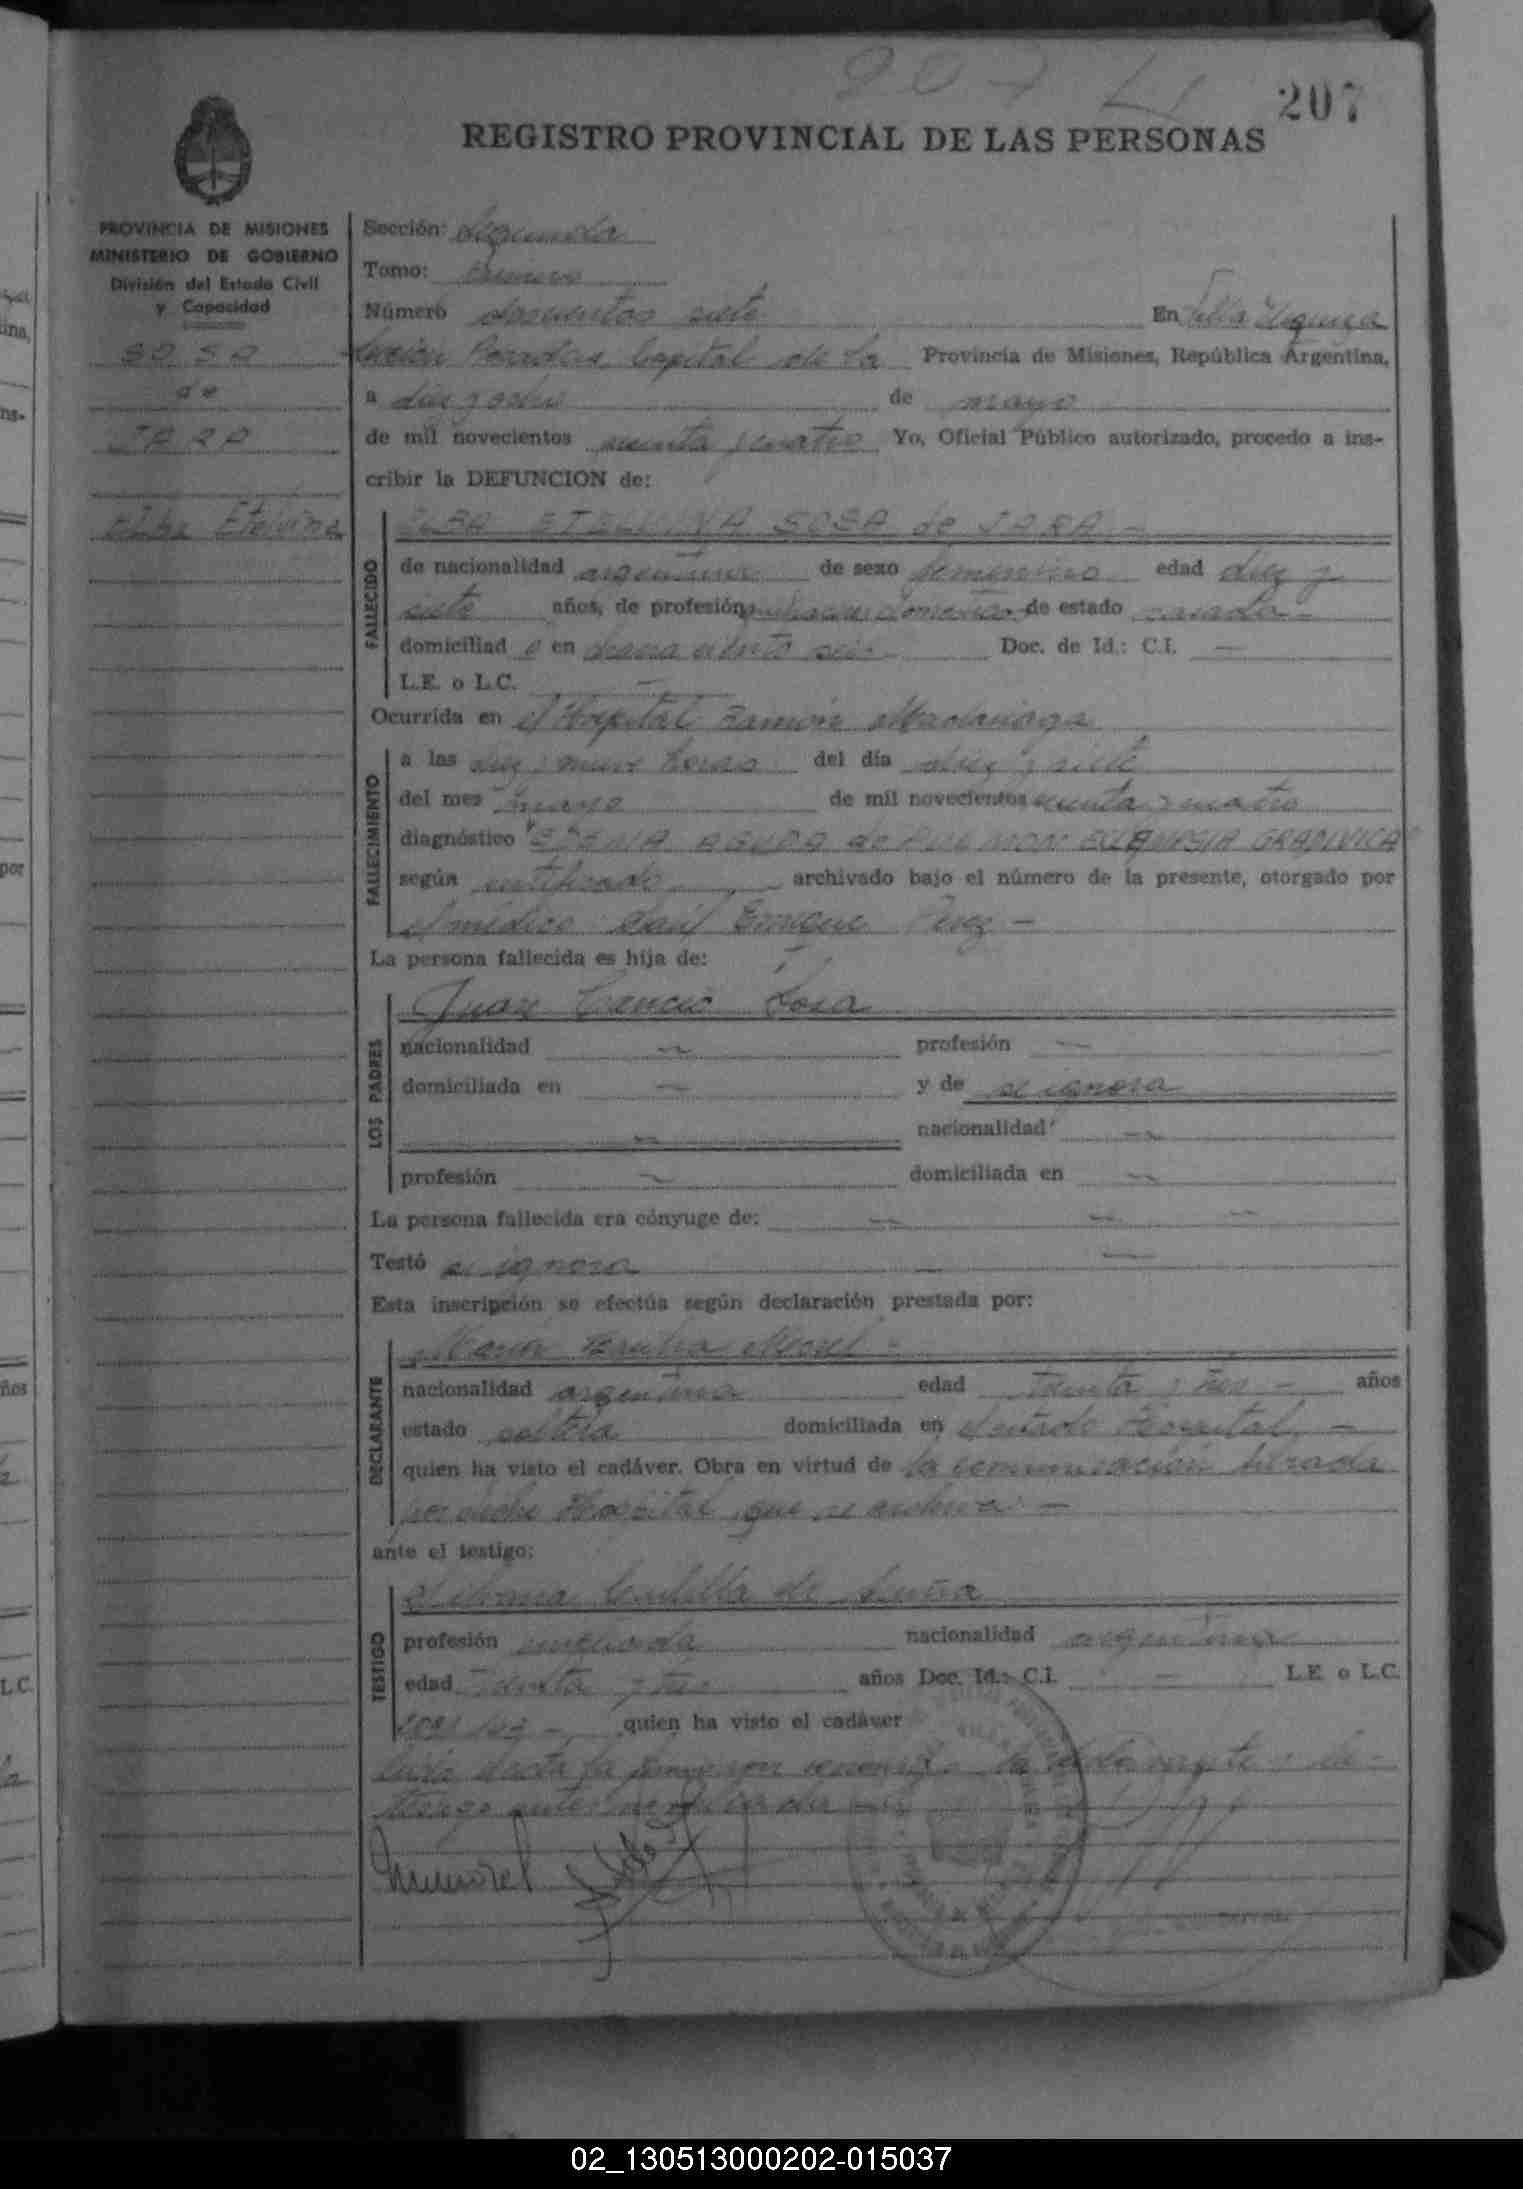 207
207
REGISTRO PROVINCIAL DE LAS PERSONAS
PROVINCIA DE MISIONES
MINISTERIO DE GOBIERNO
División del Estado Civil
y Capacidad
SOSA
de
JARA
Elba Etelvina
Sección: Segunda
Tomo: Primero
Número doscientos siete En Villa Urquiza
Posadas Capital de la Provincia de Misiones, República Argentina,
a diez y ocho de mayo
de mil novecientos sesenta y cuatro Yo, Oficial Público autorizado, procedo a ins-
cribir la DEFUNCION de:
FALLECIDO
ELBA ETELVINA SOSA de JARA -
de nacionalidad argentina de sexo femenino edad diez y
siete años, de profesión domésticos de estado casada -
domiciliad a en chacra ciento seis Doc. de Id.: C.I. -
L.E. o L.C. -
Ocurrida en el Hospital Ramón Madariaga
FALLECIMIENTO
a las diez y nueve horas del día diez y siete
del mes mayo de mil novecientos sesenta y cuatro
diagnóstico "EDEMA AGUDA de PULMON ECLAMPSIA GRAVIDICA"
según certificado archivado bajo el número de la presente, otorgado por
el médico Saúl Enrique Perez -
La persona fallecida es hija de:
LOS PADRES
Juan Cancio Sosa
nacionalidad - profesión -
domiciliada en - y de se ignora
- nacionalidad -
profesión - domiciliada en -
La persona fallecida era cónyuge de: - - -
Testó se ignora - -
Esta inscripción se efectúa según declaración prestada por:
DECLARANTE
María Morel -
nacionalidad argentina edad treinta y tres - años
estado soltera domiciliada en el citado Hospital -
quien ha visto el cadáver. Obra en virtud de la comunicación librada
por dicho Hospital que se archiva -
ante el testigo:
TESTIGO
de
profesión empleada nacionalidad argentina
edad treinta y tres años Doc. Id.: C.I. - L.E. o L.C.
quien ha visto el cadáver
Leída el acta la firman conmigo la declarante y
testigo antes
02_130513000202-015037